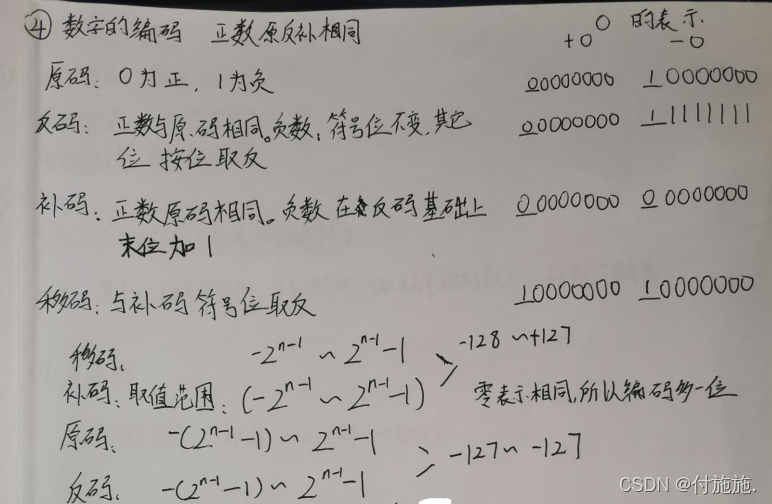 ④ 数字的编码 正数原反补相同 0 的表示
+0 -0
原码: 0为正, 1为负 00000000 10000000
反码: 正数与原码相同。负数: 符号位不变, 其它 00000000 11111111
位 按位取反
补码: 正数原码相同。负数在反码基础上 00000000 00000000
末位加1
移码: 与补码符号位取反 10000000 10000000
移码: -2^{n-1} ~ 2^{n-1}-1 -128 ~ +127
补码: 取值范围: (-2^{n-1} ~ 2^{n-1}-1) 零表示相同, 所以编码多一位
原码: -(2^{n-1}-1) ~ 2^{n-1}-1
-127 ~ -127
反码: -(2^{n-1}-1) ~ 2^{n-1}-1
CSDN @付施施.